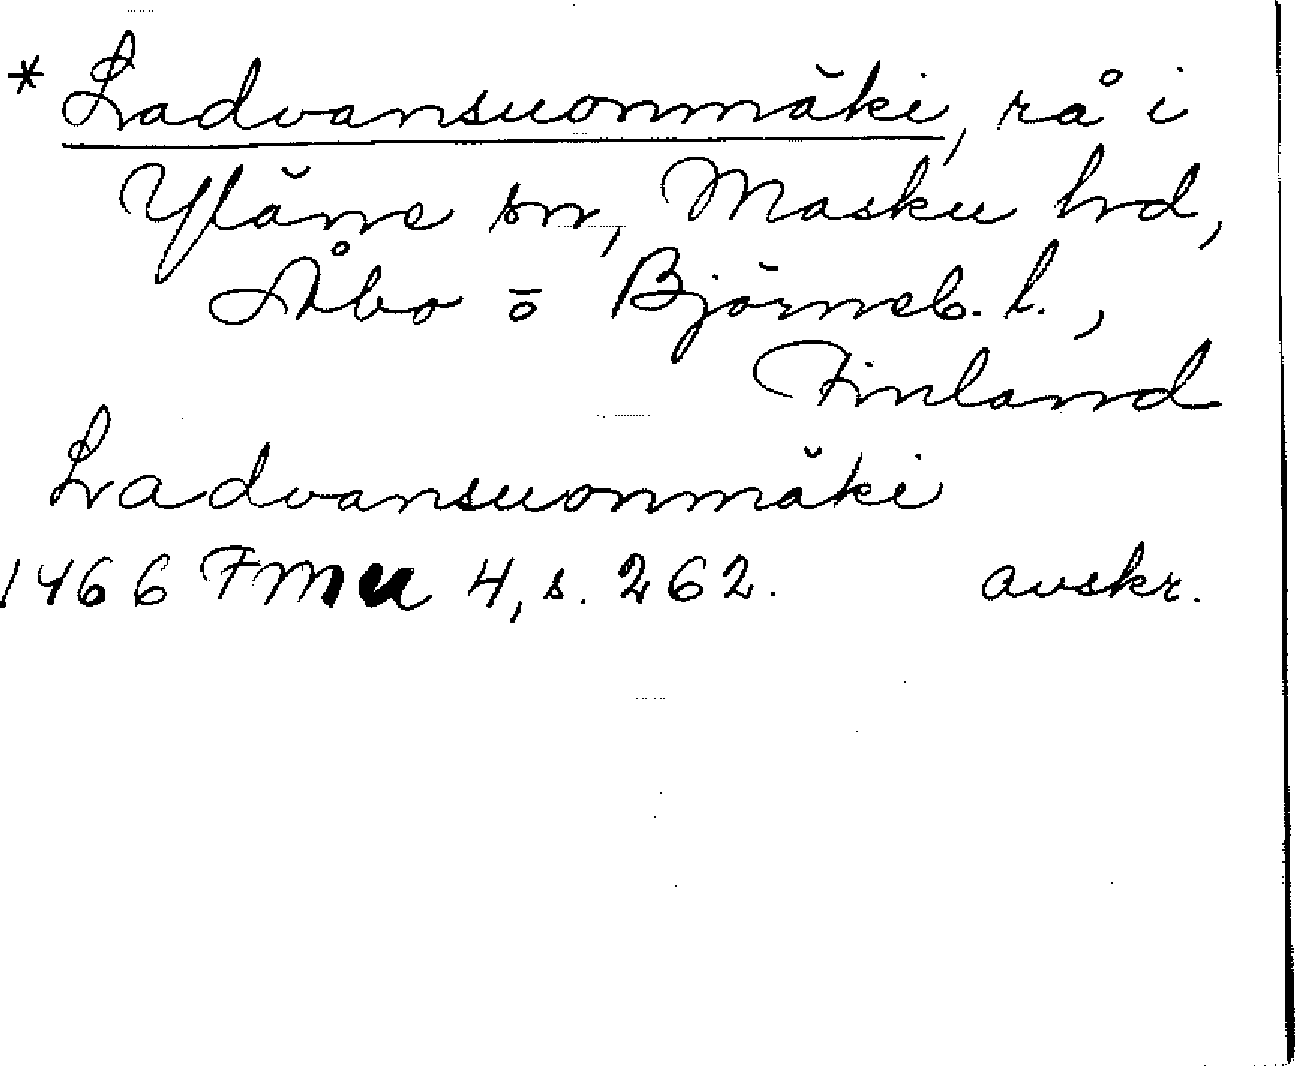 * Ladvansuonmäki, rå i
Yläne sn, Masku hd,
Åbo o Björneb. l.,
Finland
Ladvansuonmäki
1466 FMU 4, s. 262. avskr.